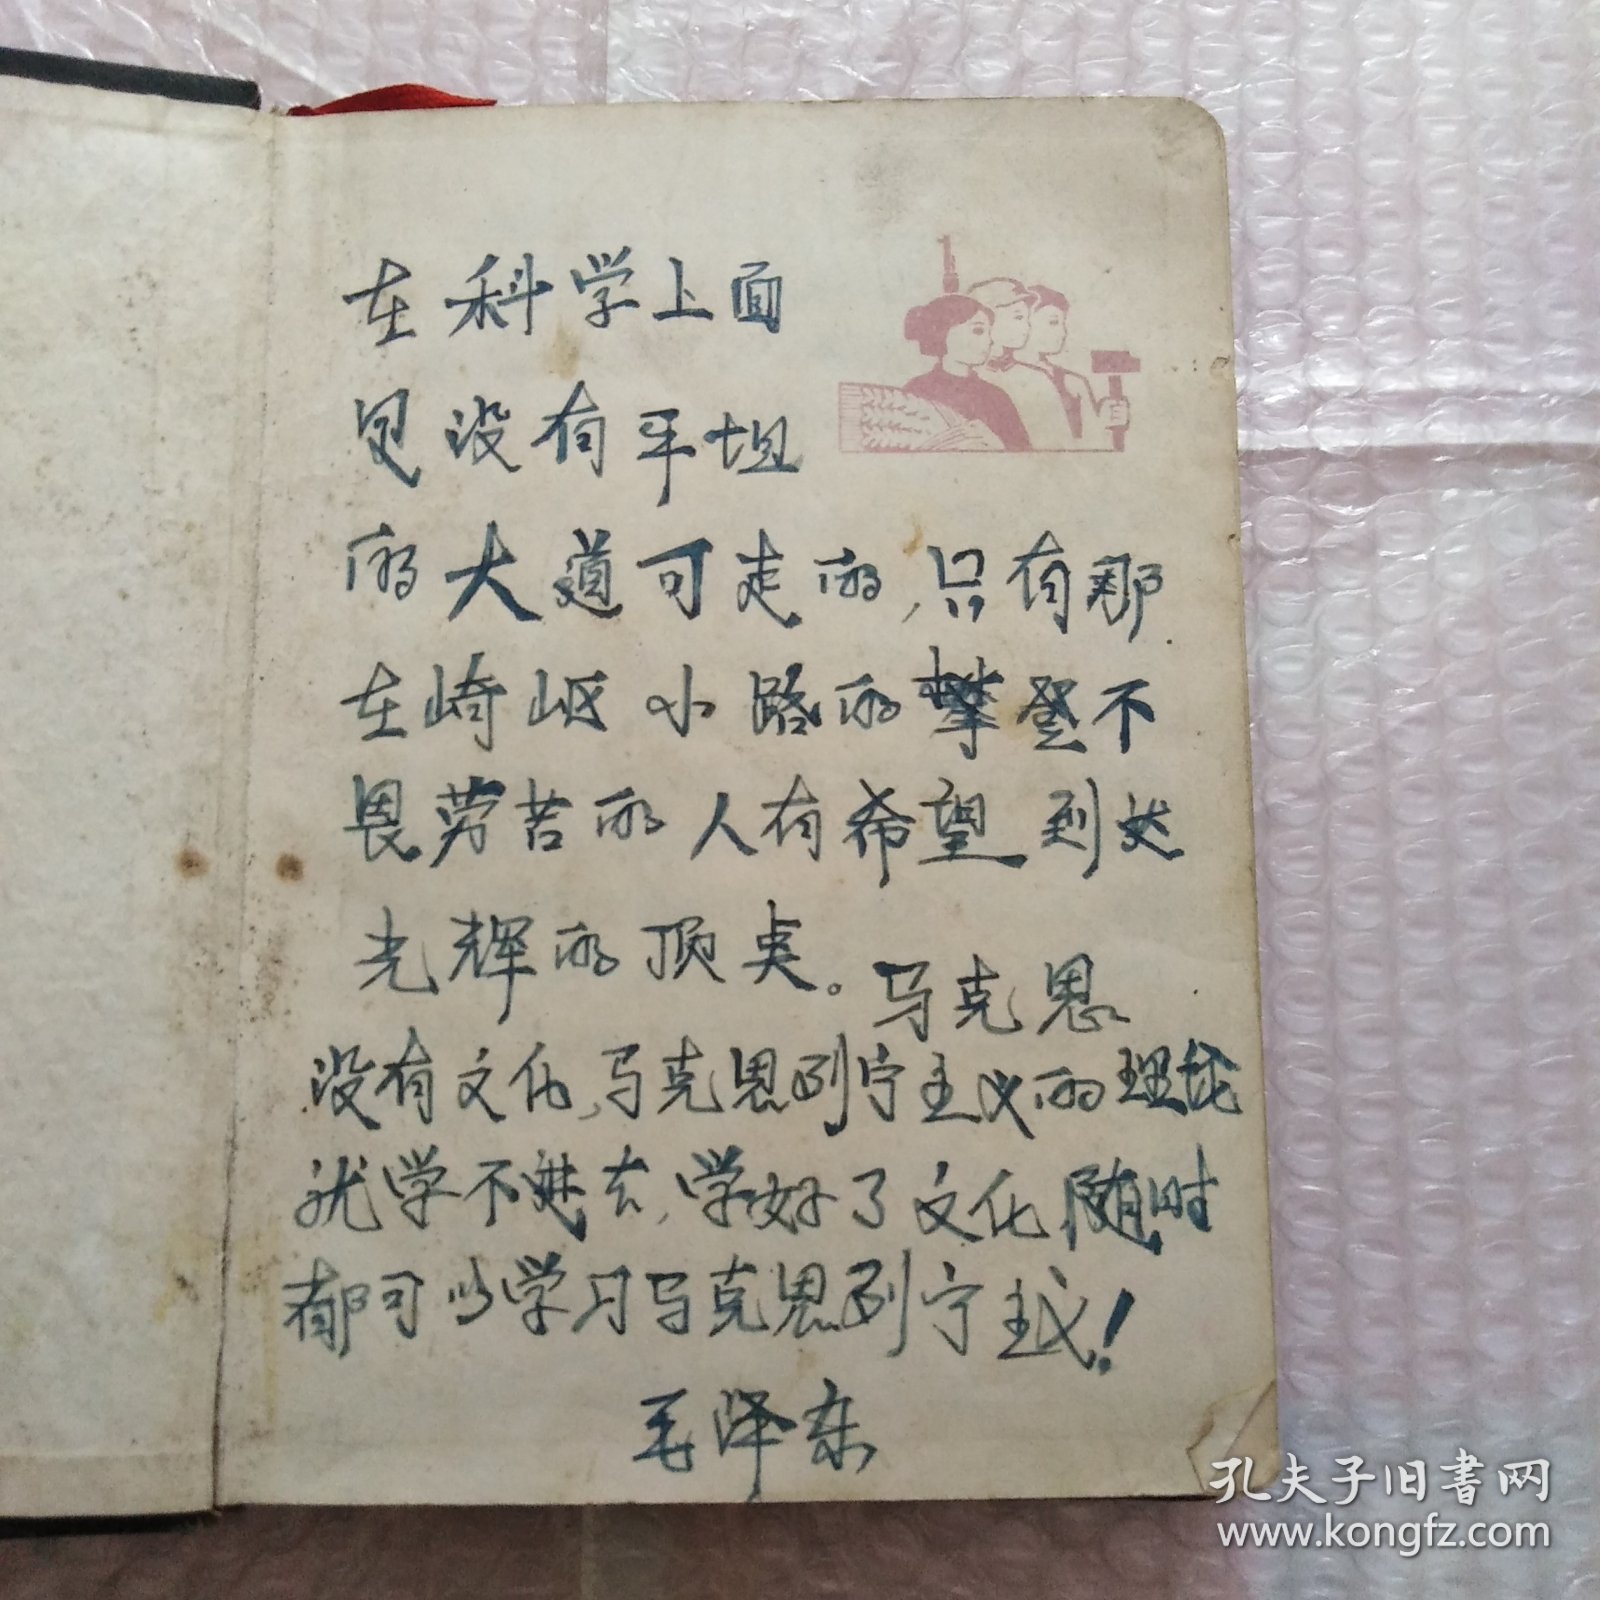 在科学上面
是没有平坦
的大道可走的,只有那
在崎岖小路的攀登不
畏劳苦的人有希望到达
光辉的顶点。马克思
没有文化,马克思列宁主义的理论
就学不进去,学好了文化,随时
都可以学习马克思列宁主义!
毛泽东
孔夫子旧书网
www.kongfz.com